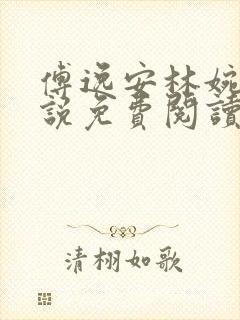 傅逸安林婉
說免費閱讀
清栩如歌